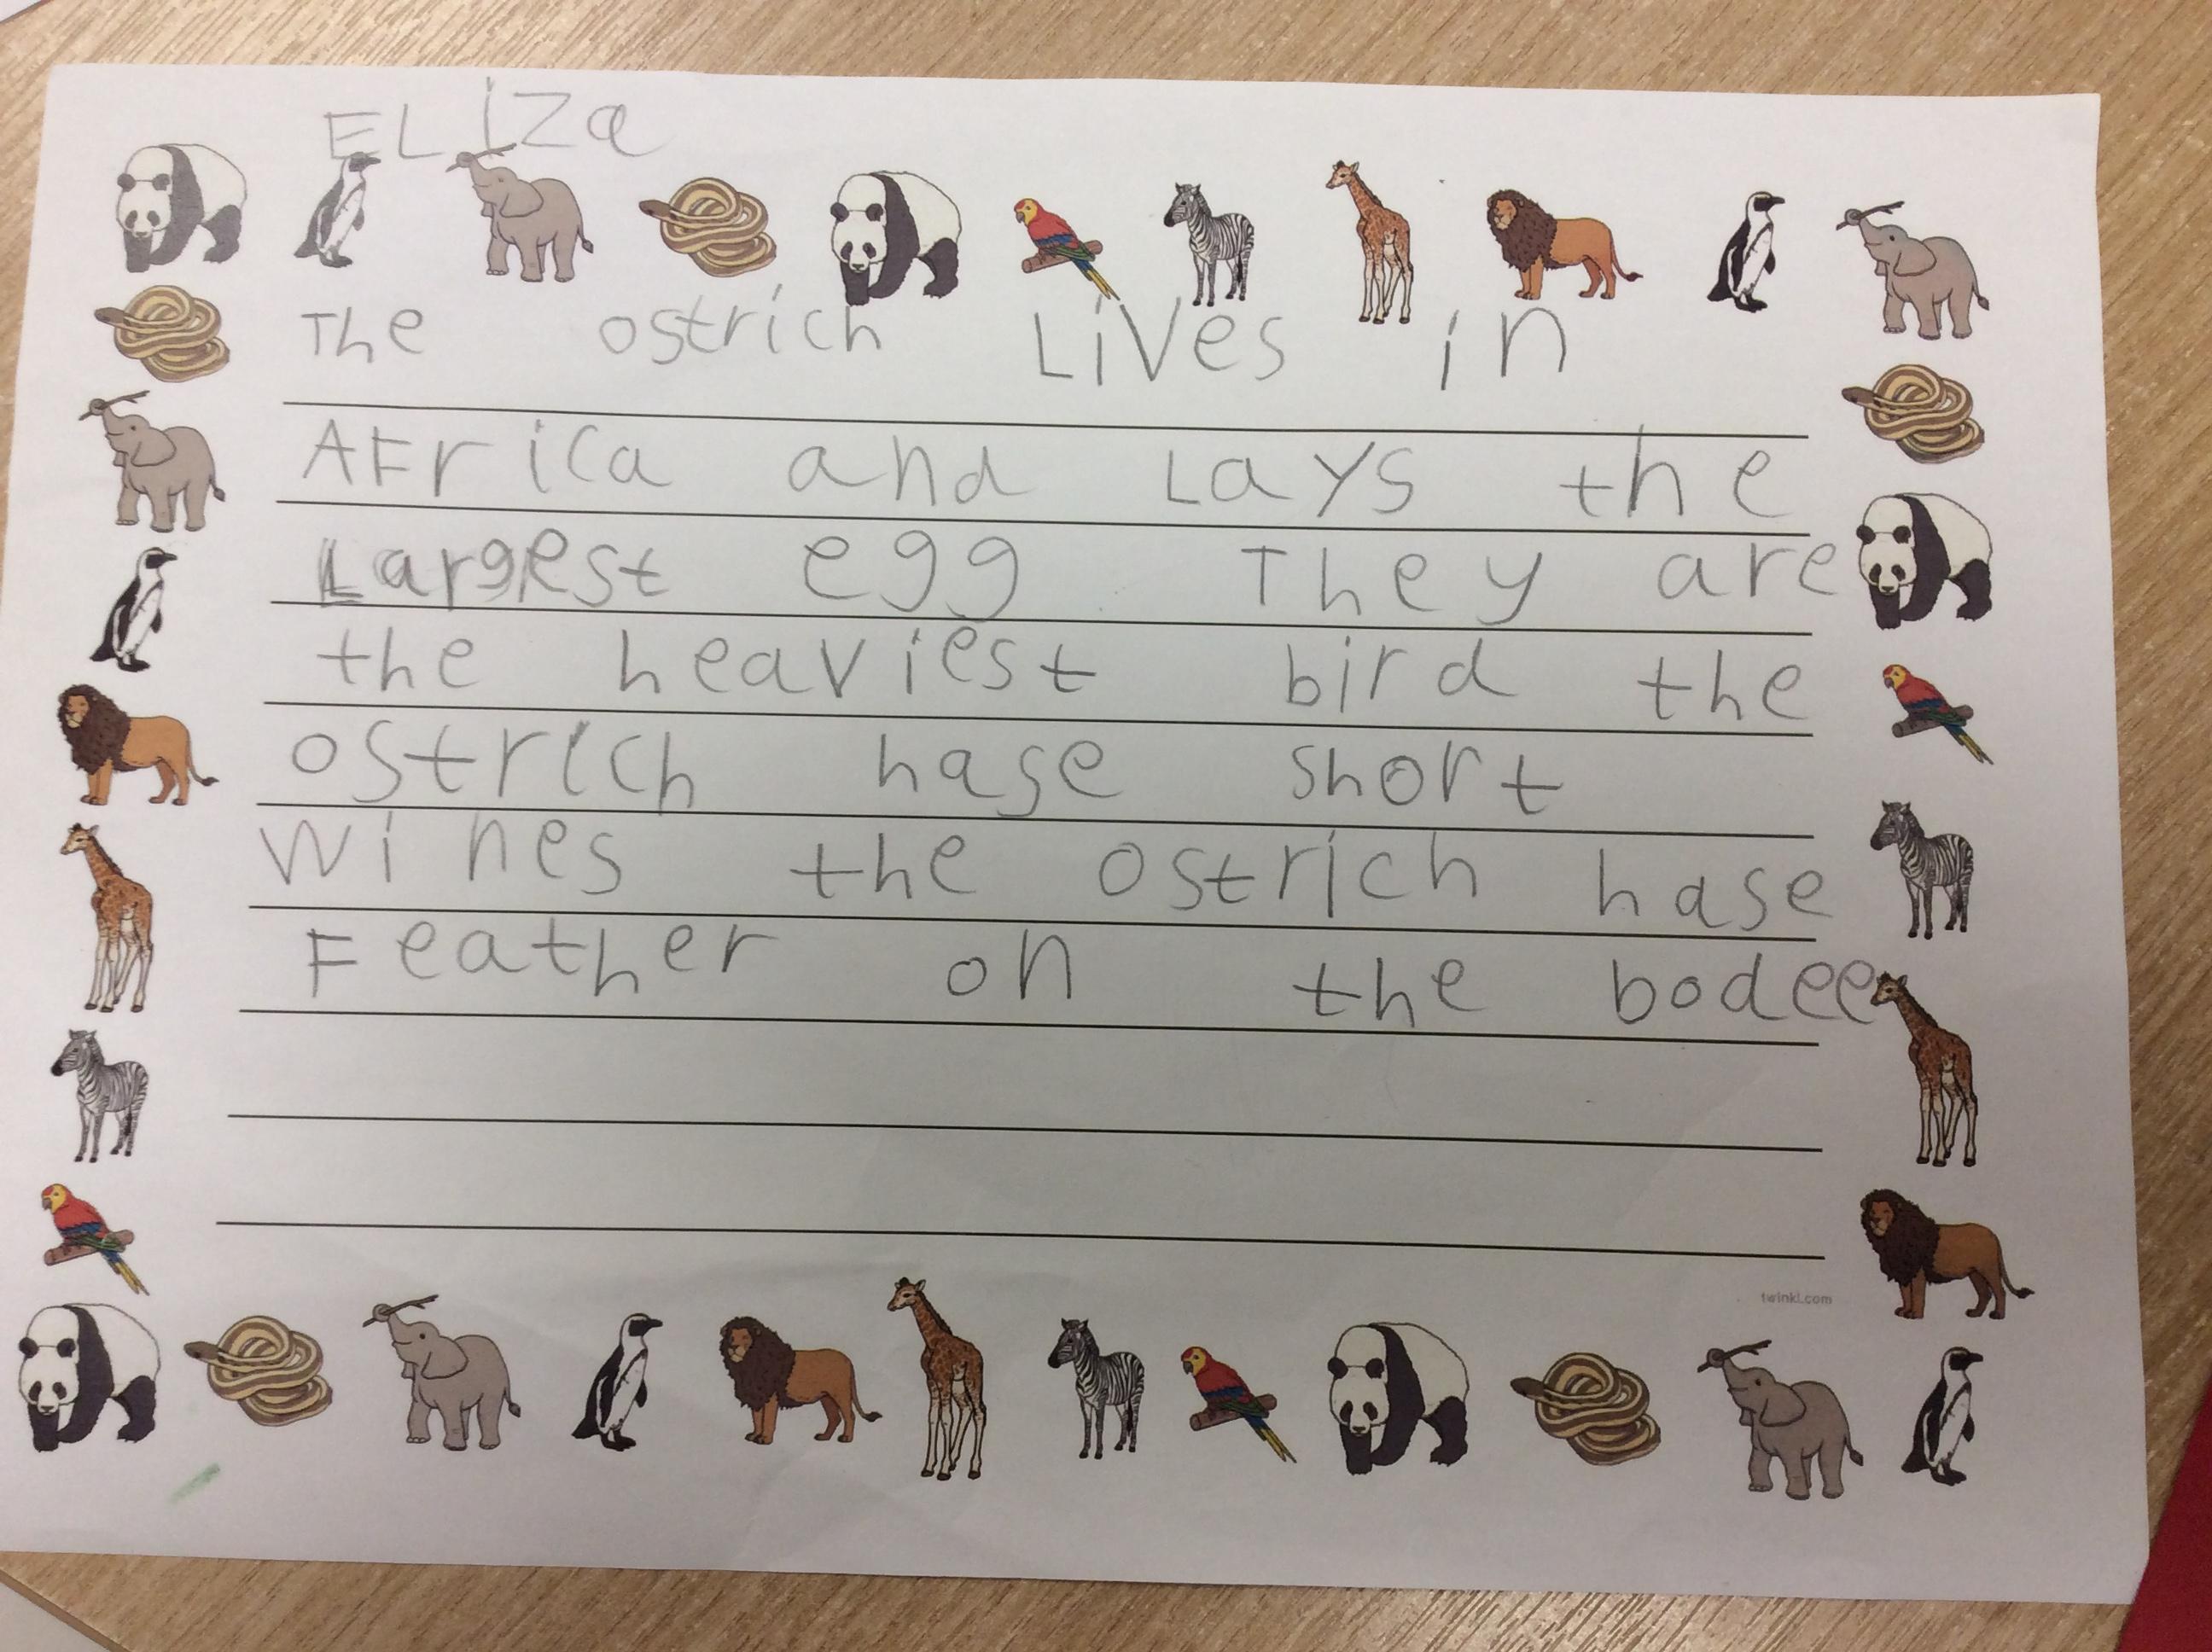 ELiza
The ostrich Lives in
AFrica and Lays the
Largest egg. They are
the heaviest bird the
ostrich hase short
Wines the ostrich hase
Feather on the bodee
twinkl.com